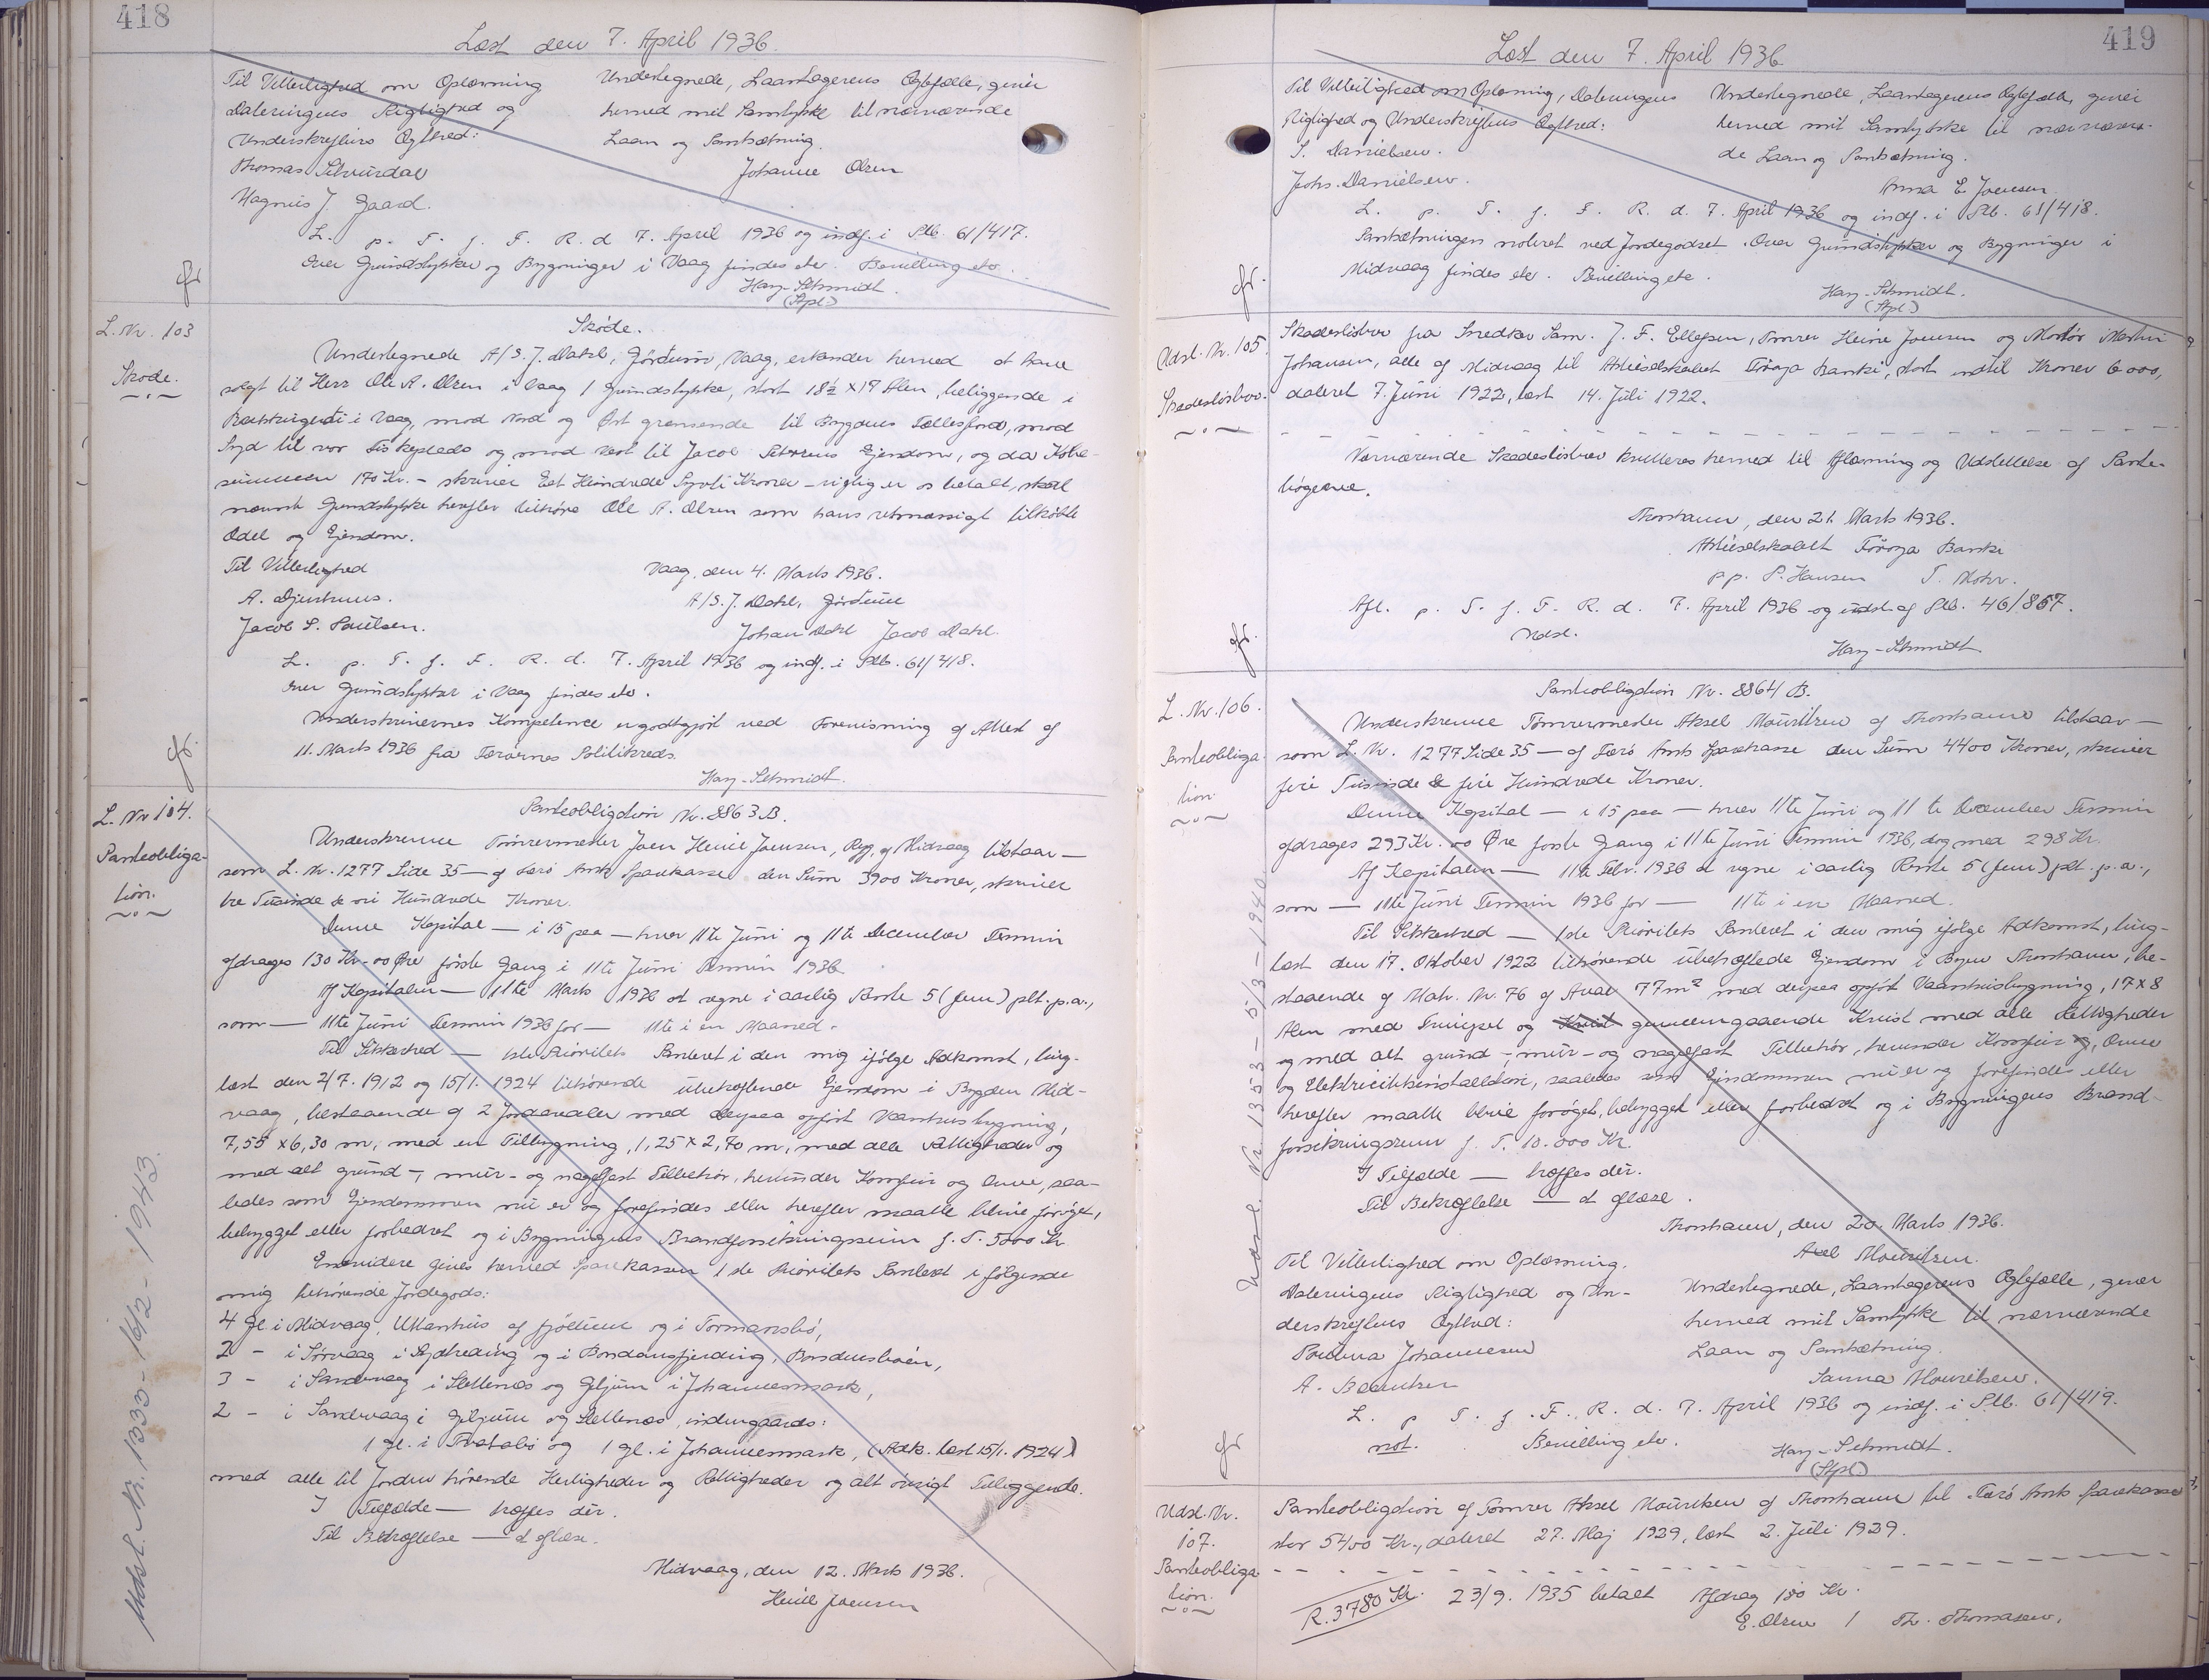 418
Læst den 7. April 1936.
Til Vitterlighed om Oplæsning
Dateringens Rigtighed og
Underskriftens Ægthed:
Thomas
Magnus J. Gaard.
Undertegnede, Laantagerens Ægtefælle, giver
herved mit Samtykke til nærværende
Laan og Pantsætning.
Johanne Olsen
L. p. T. f. F. R. d. 7. April 1936 og indf. i Ptb. 61/417.
Over Grundstykker og Bygninger i Vaag findes etc. Bevilling etc.
Hary-Schmidt.
(Stpl.)
L. Nr. 103
Skøde.
Skøde.
Undertegnede A/S. J. Dahl, Vaag, erkender herved at have
solgt til Herr Ole A. Olsen i Vaag 1 Grundstykke, stort 18½ x 17 Alen, beliggende i
i Vaag, mod Nord og Øst grænsende til Bygdens Fællesjord, mod
Syd til vor Fiskeplads og mod Vest til Jacob Ejendom, og da Købe-
summen 170 Kr. - skriver Eet Hundrede Syvti Kroner - rigtig er os betalt, skal
nævnte Grundstykke herefter tilhøre Ole A. Olsen som hans retmæssigt tilkøbte
Odel og Ejendom.
Til Vitterlighed
A. Djurhuus.
Jacob S. Poulsen.
Vaag, den 4. Marts 1936.
A/S. J. Dahl,
Johan Dahl Jacob Dahl.
L. p. T. f. F. R. d. 7. April 1936 og indf. i Ptb. 61/418.
Over Grundstykker i Vaag findes etc.
Underskrivernes Kompetence er godtgjort ved Forevisning af Attest af
11. Marts 1936 fra Færøernes Politikreds.
Hary-Schmidt.
L. Nr 104.
Panteobliga-
tion.
Panteobligation Nr. 8863.B.
Underskrevne Tømrermester Joen Heine Joensen, Ryg. af Midvaag tilstaar —
som L. Nr. 1277 Side 35 — af Færø Amts Sparekasse den Sum 3900 Kroner, skriver
tre Tusinde & ni Hundrede Kroner.
Denne Kapital — i 15 paa — hver 11te Juni og 11te December Termin
afdrages 130 Kr. 00 Øre første Gang i 11te Juni Termin 1936
Af Kapitalen — 11te Marts 1936 at regne i aarlig Rente 5 (fem) pct. p.a.,
som — 11te Juni Termin 1936 for — 11te i en Maaned.
Til Sikkerhed — 1ste Prioritets Panteret i den mig ifølge Adkomst, ting-
læst den 2/7. 1912 og 15/1. 1924 tilhørende ubehæftende Ejendom i Bygden Mid-
vaag, bestaaende af 2 Jordarealer med derpaa opført Vaanhusbygning,
7,55 x 6,30 m, med en Tilbygning, 1,25 x 2,70 m, med alle Rettigheder og
med alt grund-, mur- og nagelfast Tilbehør, herunder Komfur og Ovne, saa-
ledes som Ejendommen nu er og forefindes eller herefter maatte blive forøget,
bebygget eller forbedret og i Bygningens Brandforsikringssum f. T. 5000 Kr
Endvidere gives herved Sparekassen 1ste Prioritets Panteret i følgende
mig tilhørende Jordegods:
4 gl. i Midvaag, Uttanhus af og i Tormansbø,
2 - i Sørvaag i og i
3 - i Sandevaag i Stettenæs og Giljum i Johannesmark,
2 - i Sandevaag i Giljum og Stettenæs, indengaards:
1 gl. i og 1 gl. i Johannesmark, (Adk. læst 15/1. 1924)
med alle til Jorden hørende Herligheder og Rettigheder og alt øvrigt Tilliggende.
I Tilfælde — træffes dér.
Til Bekræftelse — at aflæse.
Midvaag, den 12. Marts 1936.
Heine Joensen
Udsl. Nr. 1333 - 16/2 - 1943.
419
Læst den 7. April 1936
Til Vitterlighed om Oplæsning, Dateringens
Rigtighed og Underskriftens Ægthed:
S. Danielsen.
Johs. Danielsen.
Undertegnede, Laantagerens Ægtefælle, giver
herved mit Samtykke til nærværen-
de Laan og Pantsætning.
Anna E. Joensen.
L. p. T. f. F. R. d. 7. April 1936 og indf. i Ptb. 61/418.
Pantsætningen noteret ved Jordegodset. Over Grundstykker og Bygninger i
Midvaag findes etc. Bevilling etc.
Hary-Schmidt.
(Stpl.)
Udsl. Nr. 105.
Skadesløsbrev.
Skadesløsbrev fra Snedker Sam. J. F. Ellefsen, Tømrer Heine Joensen og Martin
Johansen, alle af Midvaag til Aktieselskabet Føroya Banki, stort indtil Kroner 6000,
dateret 7. Juni 1922, læst 14. Juli 1922.
Nærværende Skadesløsbrev kvitteres herved til Aflæsning og Udslettelse af Pante-
bøgerne.
Thorshavn, den 21. Marts 1936.
Aktieselskabet Føroya Banki
pp. P. Hansen T. Mohr.
Afl. p. T. f. F. R. d. 7. April 1936 og udsl. af Ptb. 46/867.
Udsl.
Hary-Schmidt
L. Nr. 106.
Panteobliga-
tion.
Panteobligation Nr. 8864 B.
Underskrevne Tømrermester Aksel Mouritsen af Thorshavn tilstaar —
som L. Nr. 1277 Side 35 — af Færø Amts Sparekasse den Sum 4400 Kroner, skriver
fire Tusinde & fire Hundrede Kroner.
Denne Kapital — i 15 paa — hver 11te Juni og 11te December Termin
afdrages 293 Kr. 00 Øre første Gang i 11te Juni Termin 1936, dog med 298 Kr.
Af Kapitalen — 11te Febr. 1936 at regne i aarlig Rente 5 (fem) pct. p.a.,
som — 11te Juni Termin 1936 for — 11te i en Maaned.
Til Sikkerhed — 1ste Prioritets Panteret i den mig ifølge Adkomst, ting-
læst den 17. Oktober 1922 tilhørende ubehæftede Ejendom i Byen Thorshavn, be-
staaende af Matr. Nr. 76 af Areal 77 m² med derpaa opført Vaanhusbygning, 17 x 8
Alen med og Kvist gennemgaaende Kvist med alle Rettigheder
og med alt grund-, mur- og nagelfast Tilbehør, herunder Komfur og, Ovne
og Elektricitetsinstallation, saaledes som Ejendommen nu er og forefindes eller
herefter maatte blive forøget, bebygget eller forbedret og i Bygningens Brand-
forsikringssum f. T. 10.000 Kr.
I Tilfælde — træffes dér.
Til Bekræftelse — at aflæse.
Thorshavn, den 20. Marts 1936.
Axel Mouritsen.
Til Vitterlighed om Oplæsning.
Dateringens Rigtighed og Un-
derskriftens Ægthed:
Poulina Johannesen
A. Berntsen
Undertegnede, Laantagerens Ægtefælle, giver
herved mit Samtykke til nærværende
Laan og Pantsætning.
Sanna Mouritsen.
L. p. T. f. F. R. d. 7. April 1936 og indf. i Ptb. 61/419.
not. Bevilling etc.
Hary-Schmidt.
(Stpl.)
Udsl. Nr. 1353 - 5/3 - 1940.
Udsl. Nr.
107.
Panteobliga-
tion.
Panteobligation af Tømrer Aksel Mouritsen af Thorshavn til Færø Amts Sparekasse
stor 5400 Kr., dateret 27. Maj 1929, læst 2. Juli 1929.
R. 3780 Kr. 23/9. 1935 betalt Afdrag 180 Kr.
E. Olsen / Th. Thomasen.